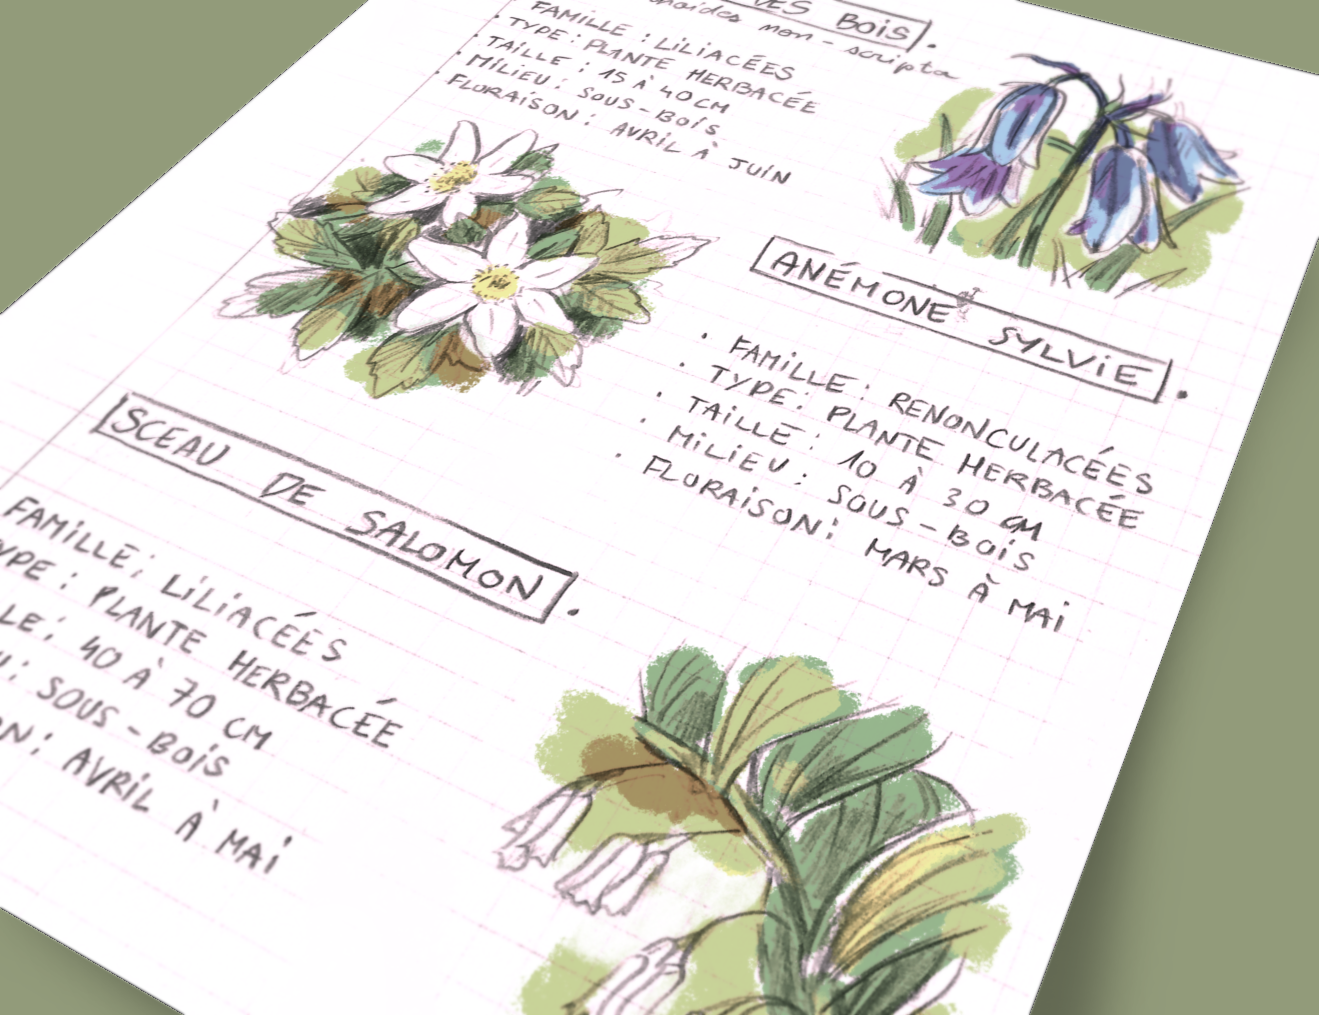 DES BOIS.
non-scripta
FAMILLE : LILIACÉES
TYPE : PLANTE HERBACÉE
TAILLE : 15 À 40 CM
MILIEU : SOUS-BOIS
FLORAISON : AVRIL À JUIN
ANÉMONE SYLVIE.
. FAMILLE : RENONCULACÉES
. TYPE : PLANTE HERBACÉE
. TAILLE : 10 À 30 CM
. MILIEU : SOUS-BOIS
. FLORAISON : MARS À MAI
SCEAU DE SALOMON.
FAMILLE : LILIACÉES
YPE : PLANTE HERBACÉE
LE : 40 À 70 CM
U : SOUS-BOIS
ON : AVRIL À MAI